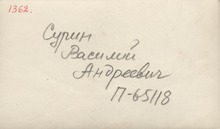 1362.
Сурин
Василий
Андреевич
П-65118